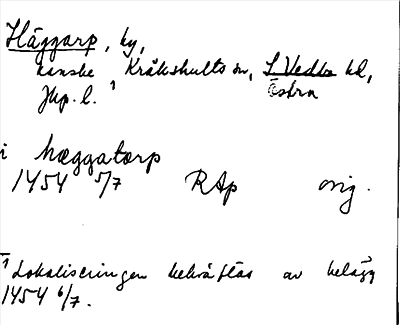 Häggarp, by,
kanske Kråkshults sn, S. Vedbo hd,
Östra
Jkp. l. 1
i hæggatorp
1454 5/7 RAp orig.
1 Lokaliseringen bekräftas av belägg
1454 6/7.